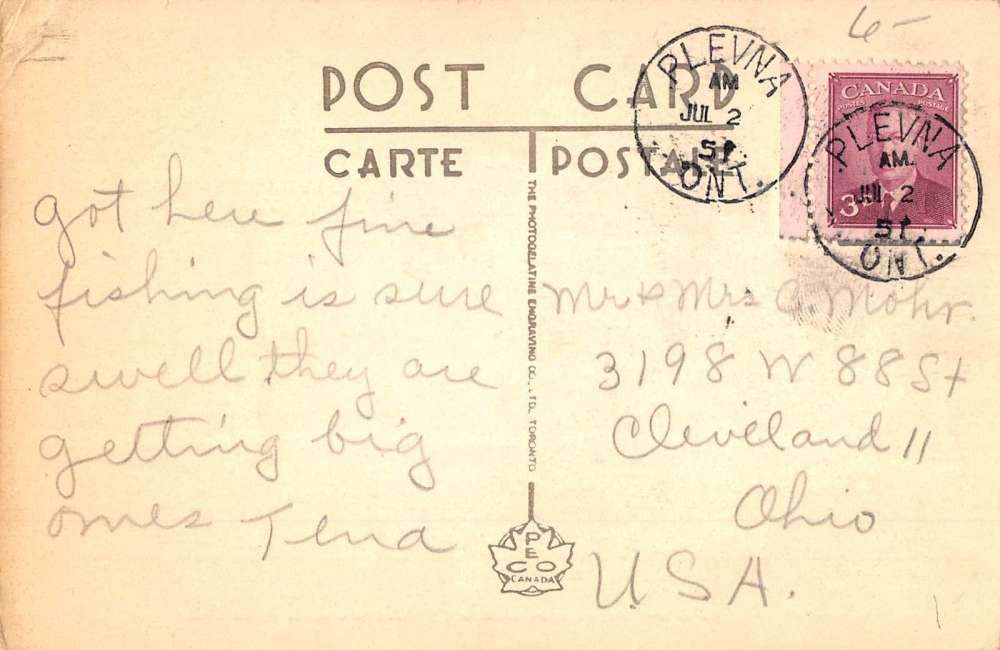 6-
POST CARD
CARTE POSTALE
PLEVNA
AM
JUL 2
51
ONT.
CANADA
POSTES POSTAGE
3
PLEVNA
AM.
JUL 2
51
ONT.
got here fine
fishing is sure
swell they are
getting big
ones Tena
THE PHOTOGELATINE ENGRAVING CO., LTD. TORONTO
PECO
CANADA
Mr & Mrs C Mohr.
3198 W 88 St
Cleveland 11
Ohio
U.S.A.